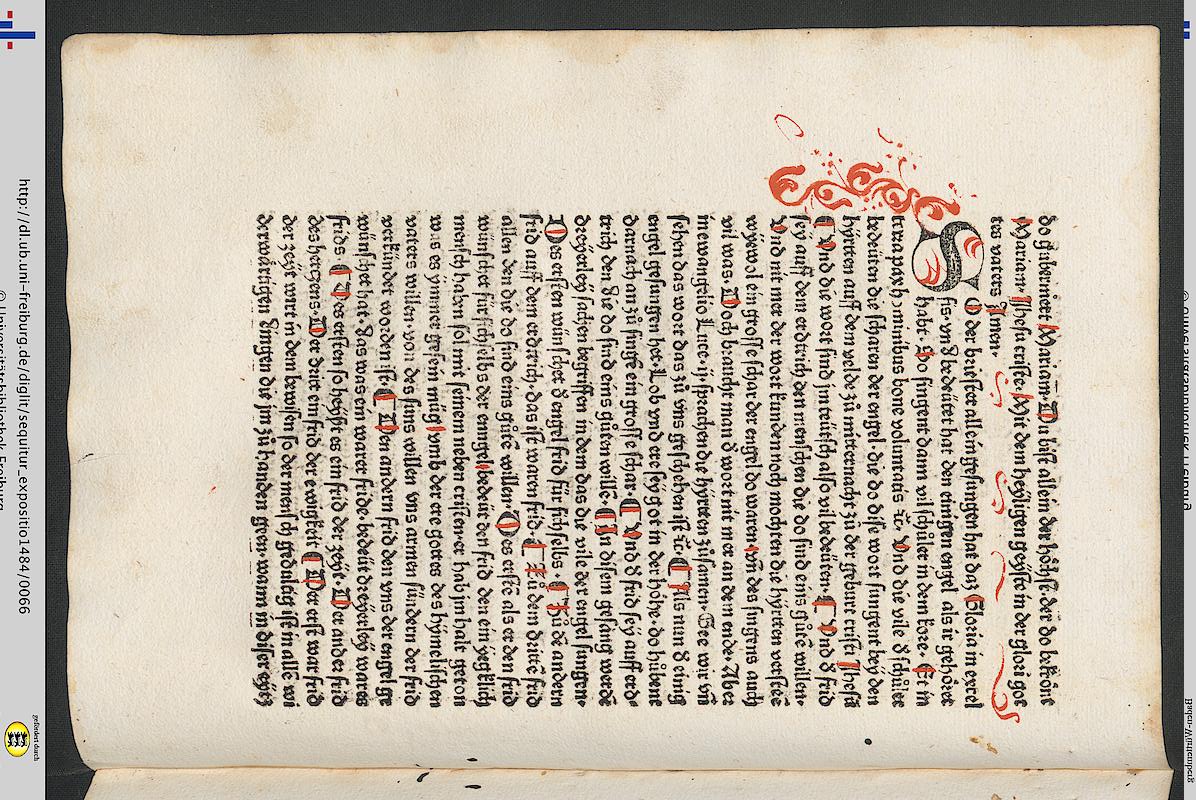 do gubernierst Mariam. Du bist allein der höchst. der do krönt
Mariam. Jhesu criste. Mit dem heyligen geyste in der glori got
tes vaters Amen.
SO der briester allein gesungen hat daz Gloria in excel
sis. vnd bedeütet hat den einigen engel als ir gehöret
habt. So singent dann vil schuler in dem kore. Et in
terra pax hominibus bone voluntatis ꝛc. Vnd die vile d̕ schuler
bedeüten die scharen der engel die do dise wort sungent bey den
hyrtten auff dem velde zů mitternacht zů der geburt cristi Jhesu
¶ Vnd die wort sind zu teütsch also vil bedeüten. ¶ Vnd d̕ frid
sey auff dem erdtrich den menschen die do sind eins gůtē willen.
Vnd nit mer der wort kunden noch mochten die hyrtten versteē
wyewol ein grosse schar der engel do waren. vn̄ des singens auch
vil was. Doch braucht man d̕ wort nit mer an dem ende. Aber
im ewangelio Luce. ij. sprachen die hyrtten zůsamen. Gee wir vn̄
sehen das wort das zů vns geschehen ist ꝛc. ¶ Als nun d̕ einig
engel gesungen het. Lob vnd ere sey got in der höhe. do hůbent
darnach an zů singē ein grosse schar. ¶ Vnd d̕ frid sey auff erd
trich den die do sind eins gůten willē. ¶ In disem gesang werdē
dreyerley sachen begriffen in dem das die vile der engel sungen.
Des ersten wünschet d̕ engel frid für sich selbs. ¶ Zů dē andern
frid auff dem erdtrich. das ist waren frid. ¶ Zů dem drittē frid
allen den die do sind eins gůtē willen. Des erstē als er den frid
wünschet für sich selbs der enngel. bedeüt den frid den ein yegklich
mensch haben sol mit seinem neben cristen. er hab im halt geton
was es ymmer gesein müg. vmb der ere gottes des hymelischen
vaters willen. von des suns willen vns armen sündern der frid
verkündet worden ist. ¶ Den andern frid den vns der engel ge
wünschet hat. das was ein warer fride. bedeüt dreyerley wares
frids. ¶ Des ersten so heyßt es ein frid der zeyt. Der ander frid
des hertzens. Der drit ein frid der ewigkeit. ¶ Der erst war frid
der zeyt wirt in dem bewisen so der mensch gedultig ist in allē wi
derwärtigen dingen die im zů handen geen. wann in diser zeyt
http://dl.ub.uni-freiburg.de/diglit/sequitur_expositio1484/0066
© Universitätsbibliothek Freiburg
gefördert durch
Baden-Württemberg